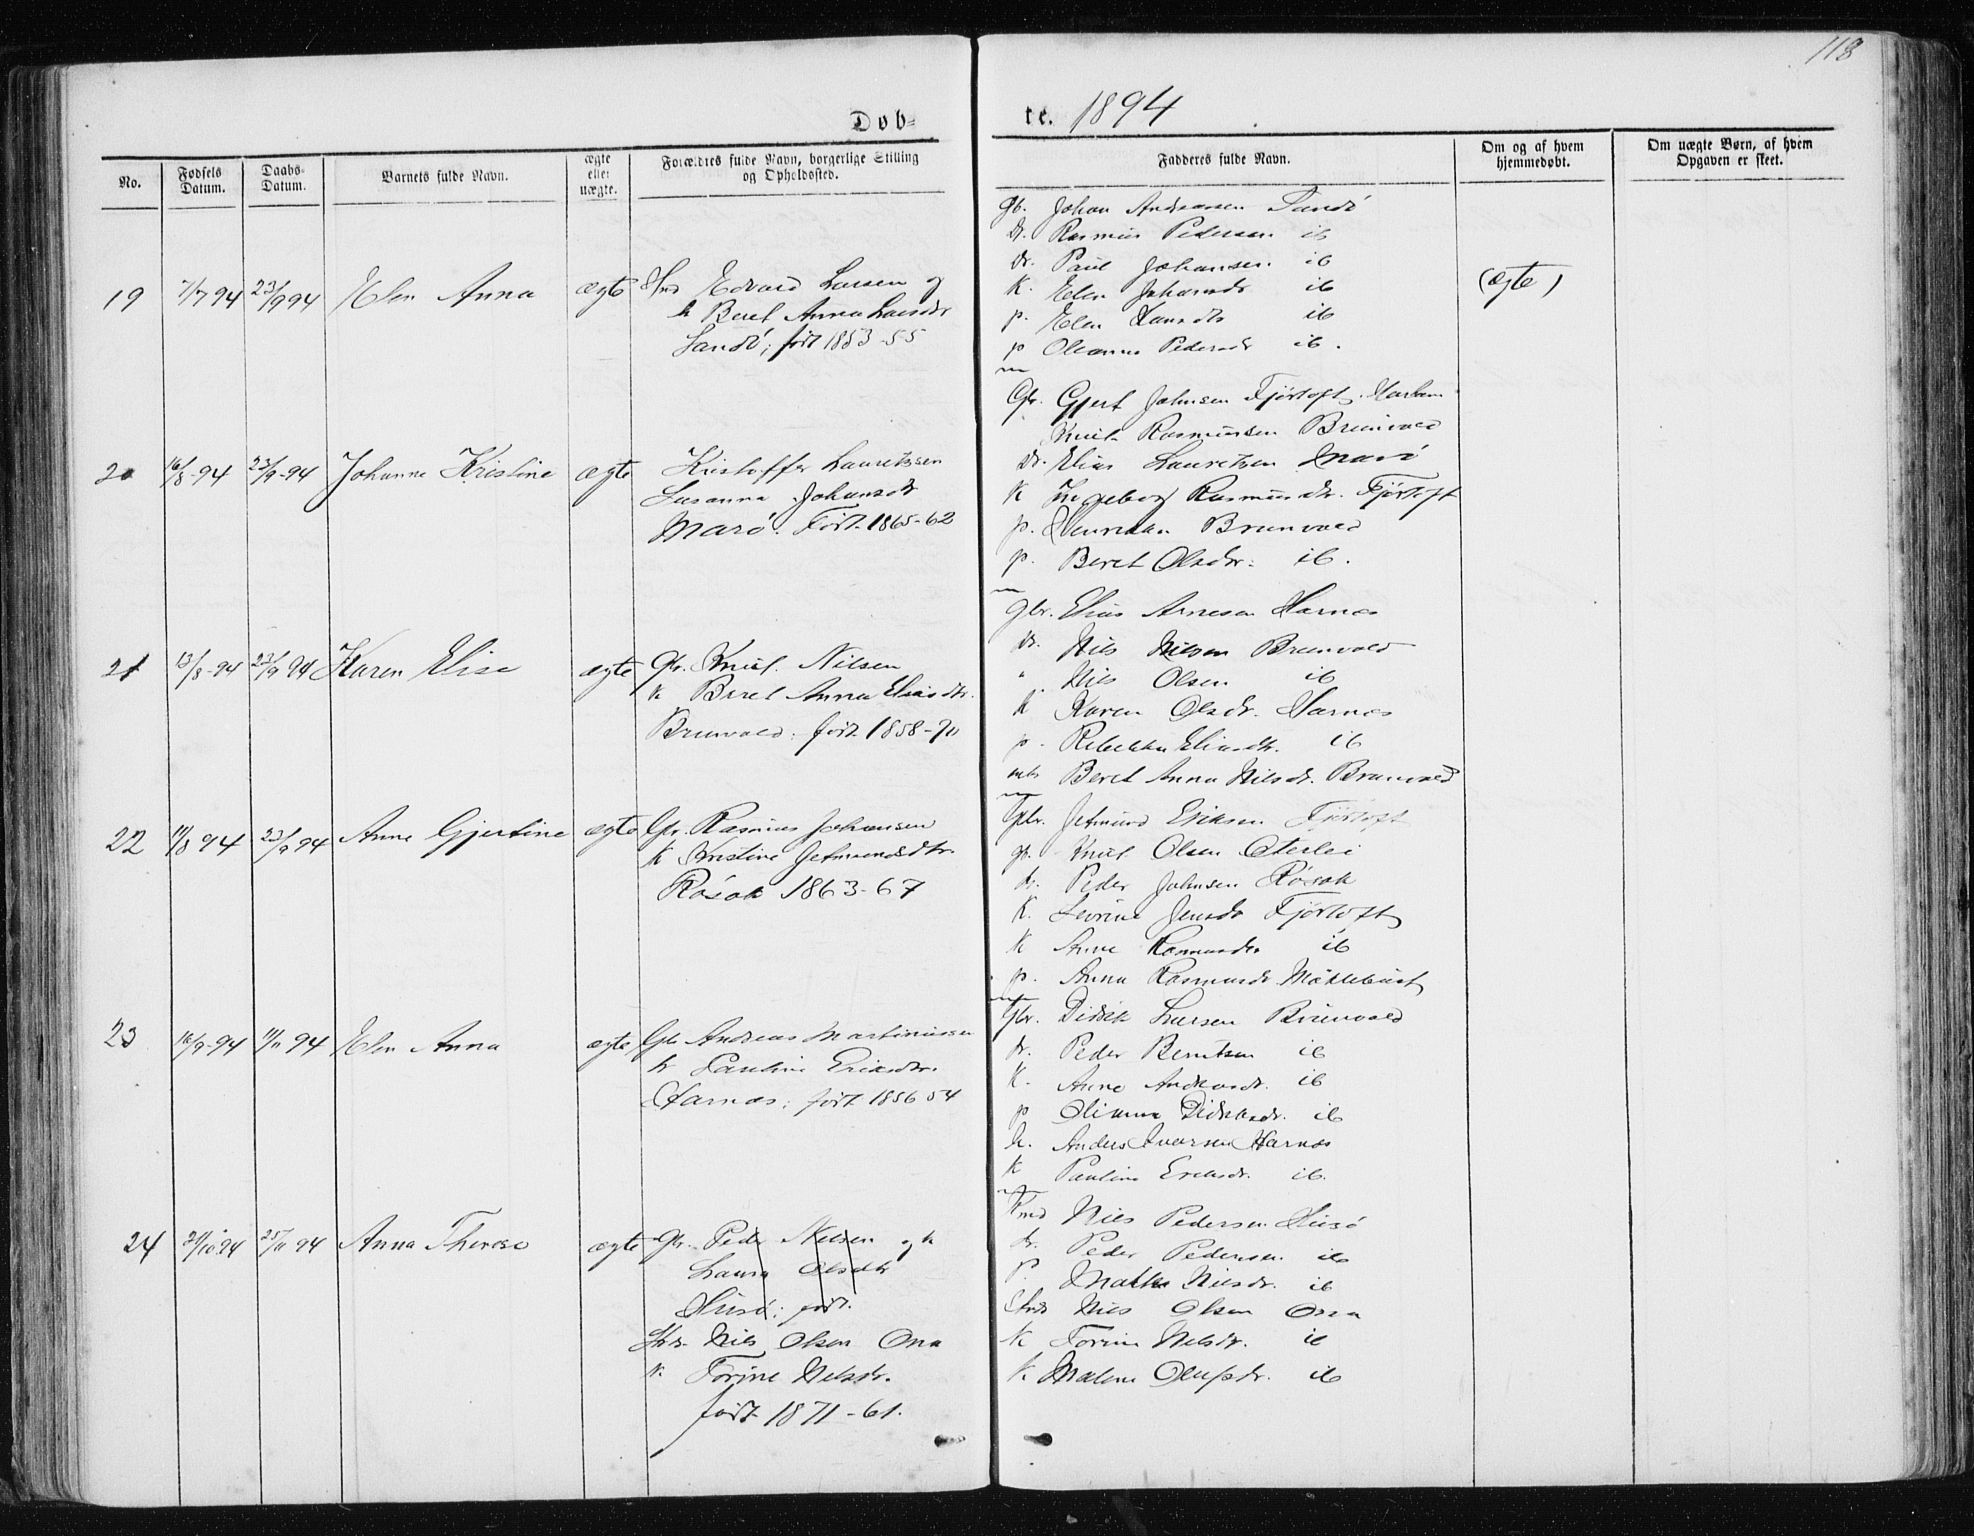 118
Døb-
te. 1894
No.
Fødsels Datum.
Daabs-Datum.
Barnets fulde Navn.
ægte eller uægte.
Forældres fulde Navn, borgerlige Stilling og Opholdssted.
Fadderes fulde Navn.
Om og af hvem hjemmedøbt.
Om uægte Børn, af hvem Opgaven er skeet.
19 7/7 94 23/9 94 Elen Anna ægte Edvard Larsen og
k Beret Anna Larsdtr
Sandø; født 1853-55
gb. Johan Andreasen Sandø
dr. Rasmus Pedersen ib
dr. Paul Johansen ib
k. Elen Johansdr ib
p. Elen ib
p Oleanna Pedersdr ib.
(ægte)
20 16/8-94 23/9-94 Johanna Kristine ægte Kristoffer Lauritssen
Susanna Johansdr
Marø. Født 1865-62
Gbr. Gjert Johnsen Fjørtoft. Harham
Knut Rasmussen Brunvold
dr. Elias Lauritsen Marø
k Ingeborg Rasmusdr. Fjørtoft
p. Brunvold
p. Beret Olsdtr: ib.
21 13/8-94 23/9 94 Karen Elise ægte Gbr. Knut Nilsen
k Beret Anna Eliasdtr.
Brunvold: født 1858-70
gbr. Elias Arnesen Harnes
dr. Nils Nilsen Brunvold
" Nils Olsen ib
k Karen Olsdr. Harnes
p. Rebekka Eliasdtr. ib
Beret Anna Nilsdr. Brunvold
22 11/8 94 23/9 94 Anne Gjertine ægte Gbr. Rasmus Johansen
k Kristine Jetmundsdtr.
Røsok 1863-67
Gbr. Jetmund Eriksen Fjørtoft
gbr. Knut Olsen Otterlei
dr. Peder Johnsen Røsok
k. Sevrine Jensdr Fjørtoft
k Anne Rasmusdr ib
p. Anna Rasmusdr Møklebust
23 16/9-94 11/11 94 Elen Anna ægte Gbr Andreas Martinussen
k Pauline Eriksdtr.
Harnes: født 1856 54
Gbr. Didrik Larsen Brunvold
dr. Peder Berntsen ib
k. Anne Andreasdr. ib
p Olianna Didriksdr. ib
Anders Iversen Harnes
k Pauline Eriksdr. ib.
24 24/10 94 25/11 94 Anna Therese ægte Gbr. Peder Nilsen og k
Laura Olsdtr
Husø: født.
Strds Nils Olsen Ona
k. Torine Nilsdr.
født 1871-61.
Nils Pedersen Husø
dr. Peder Pedersen ib
p. Nilsdr. ib
Strds Nils Olsen Ona
k Torine Nilsdr. ib
k. Malene Olufsdr. ib